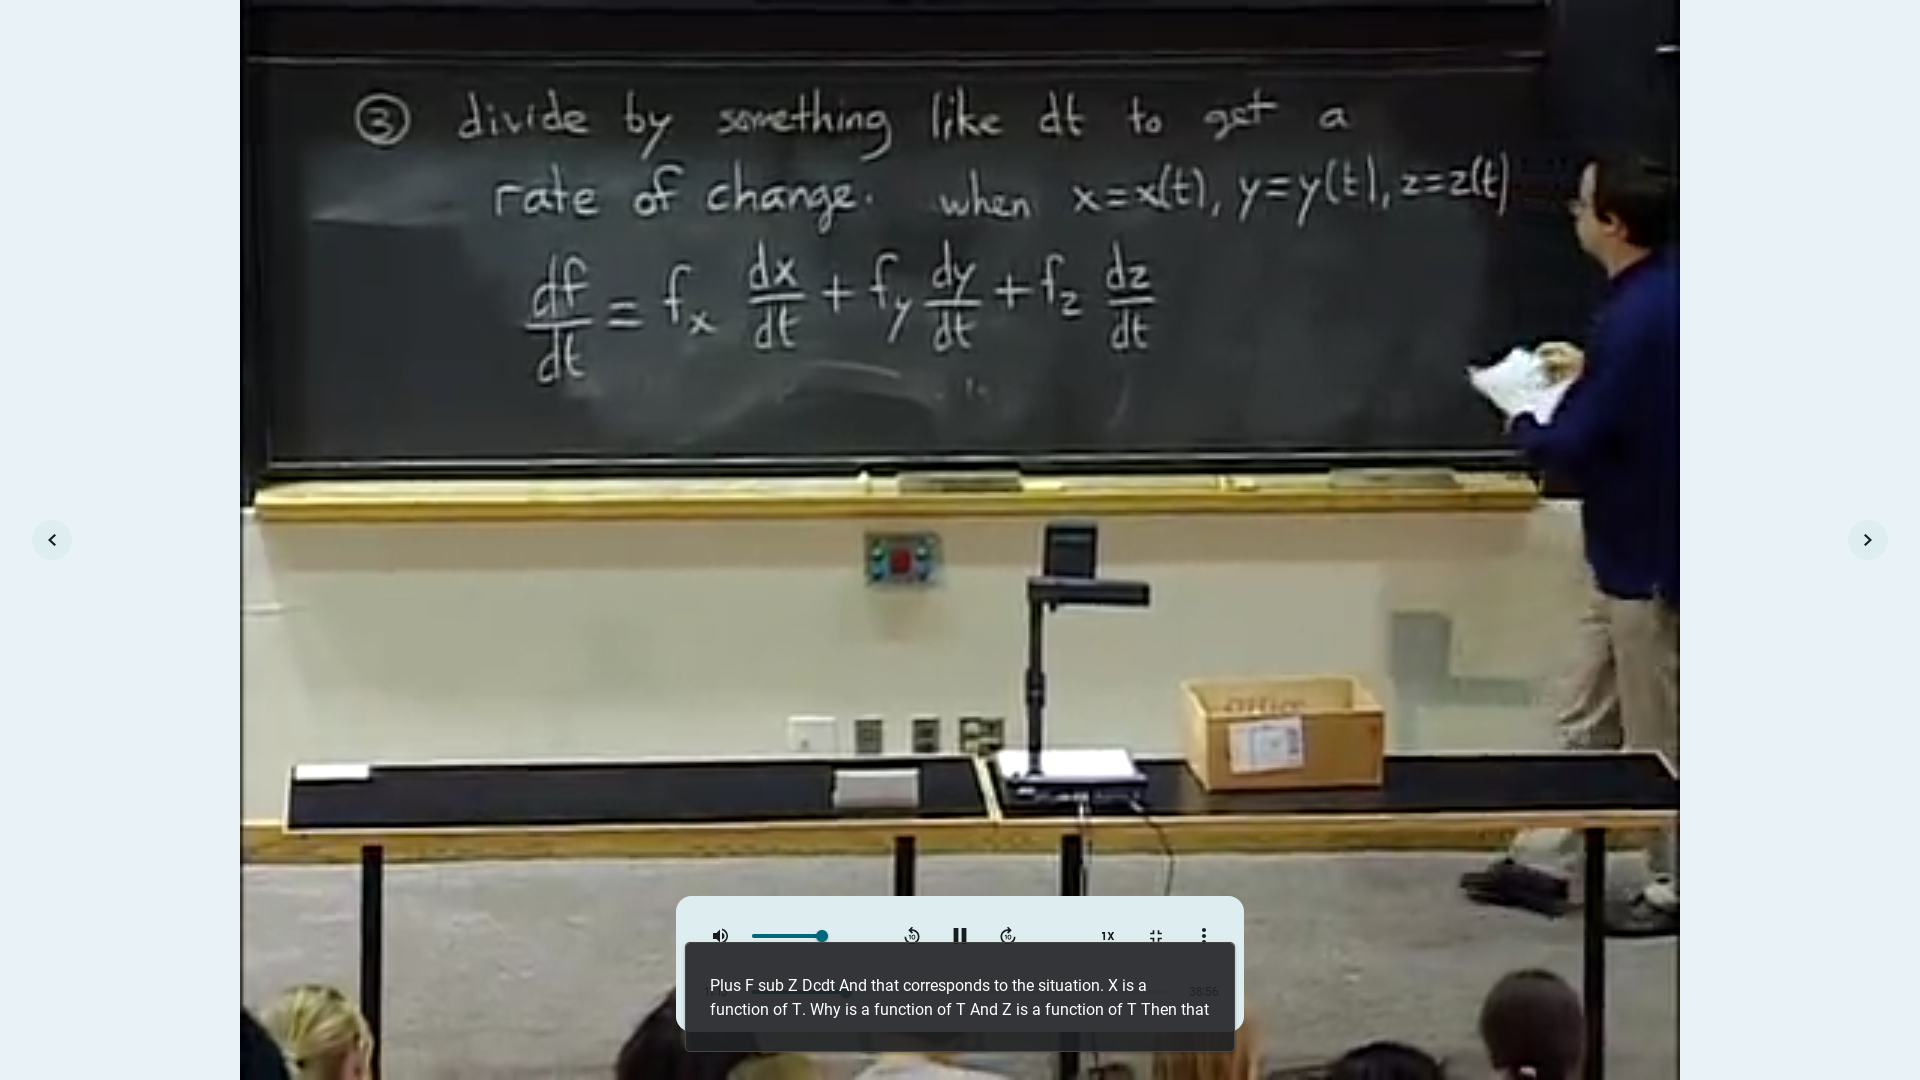 ③ divide by something like dt to get a
rate of change. when x=x(t), y=y(t), z=z(t)
df/dt = f_x dx/dt + f_y dy/dt + f_z dz/dt
Office
1X
38:56
Plus F sub Z Dcdt And that corresponds to the situation. X is a
function of T. Why is a function of T And Z is a function of T Then that